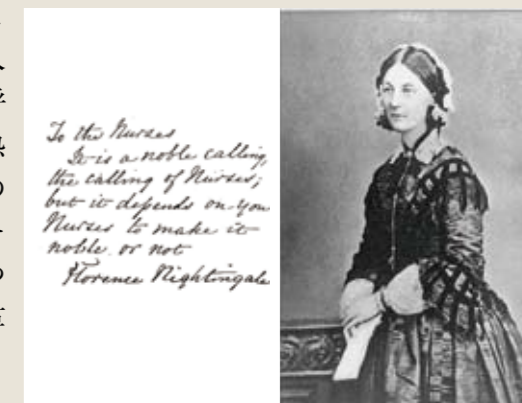 To the Nurses
It is a noble calling,
the calling of Nurses;
but it depends on you
Nurses to make it
noble or not
Florence Nightingale